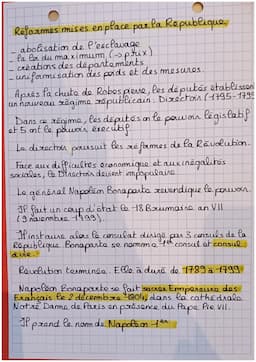 Réformes mises en place par la République.
- abolisation de l'esclavage
- la loi du maximum (→ prix)
- créations des départements
- uniformisation des poids et des mesures.
Après la chute de Robespierre, les députés établissent
un nouveau régime républicain : Directoire (1795-1799)
Dans ce régime, les députés on le pouvoir législatif
et 5 ont le pouvoir exécutif
Le directoire poursuit les réformes de la Révolution.
Face aux difficultés économique et aux inégalités
sociales, le Directoire devient impopulaire.
Le général Napoléon Bonaparte revendique le pouvoir.
Il fait un coup d'état le 18 Brumaire an VII
(9 novembre 1799).
Il instaure alors le consulat dirigé par 3 consuls de la
République. Bonaparte se nomme 1er consul et consul
à vie.
Révolution terminée. Elle à duré de 1789 à 1799
Napoléon Bonaparte se fait sacrer Empereur des
Français le 2 décembre 1804, dans la cathédrale
Notre Dame de Paris en présence du Pape Pie VII.
Il prend le nom de Napoléon 1er